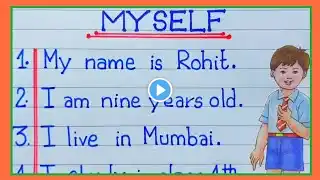 MYSELF
1. My name is Rohit.
2. I am nine years old.
3. I live in Mumbai.